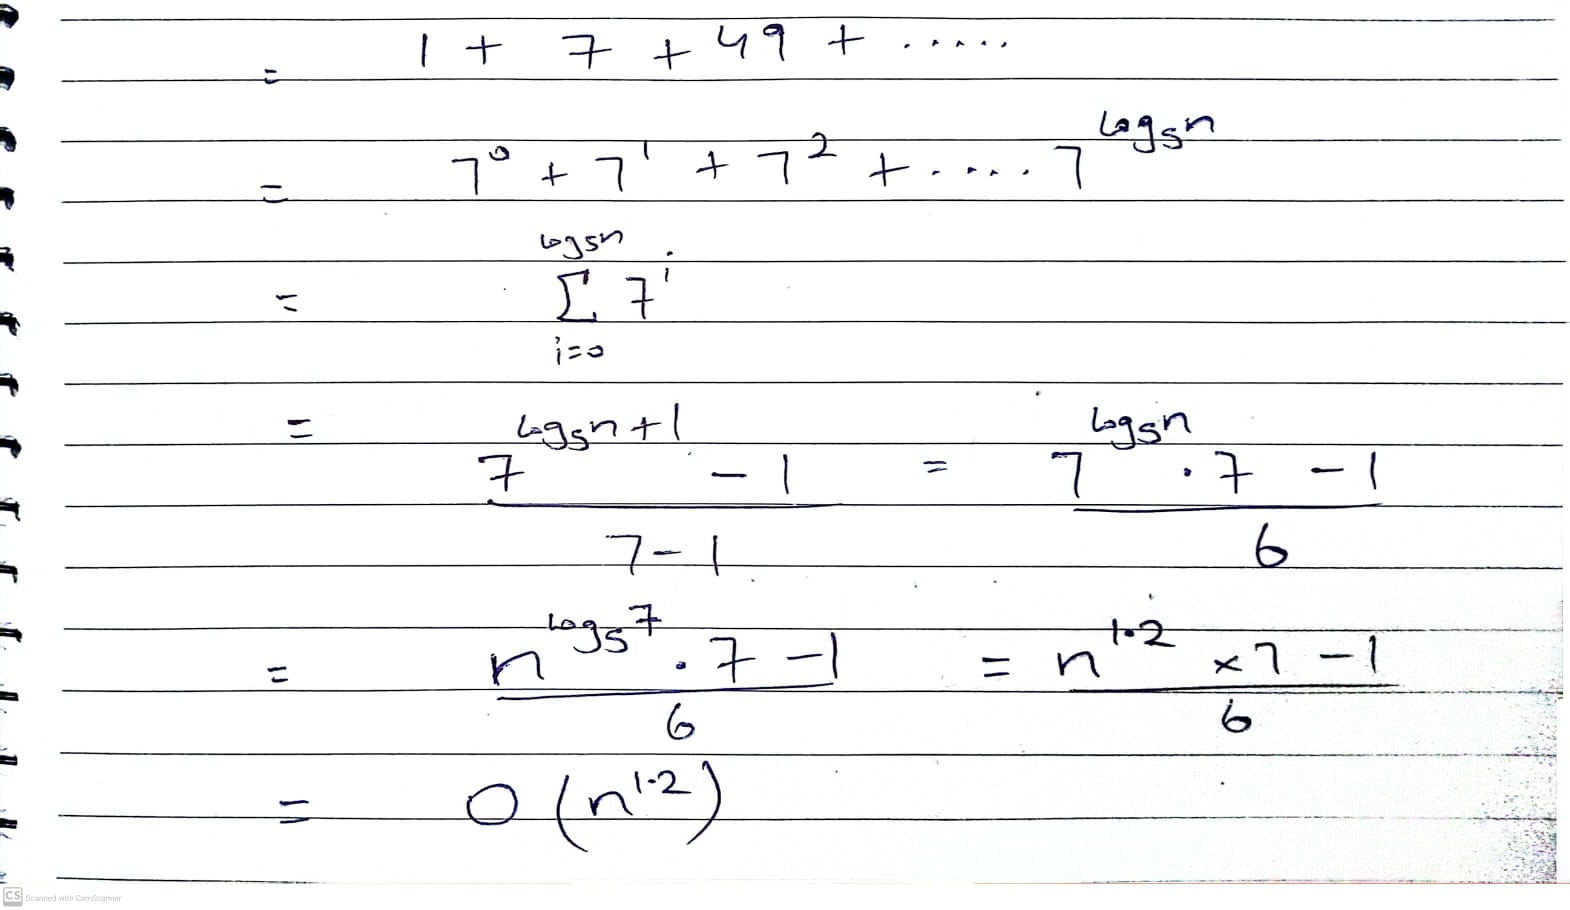 = 1 + 7 + 49 + .....
= 7⁰ + 7¹ + 7² + ..... 7^(log₅n)
= Σ_(i=0)^(log₅n) 7^i
= (7^(log₅n+1) - 1) / (7-1) = (7^(log₅n) · 7 - 1) / 6
= (n^(log₅7) · 7 - 1) / 6 = (n^(1.2) × 7 - 1) / 6
= O(n^(1.2))
CS Scanned with CamScanner